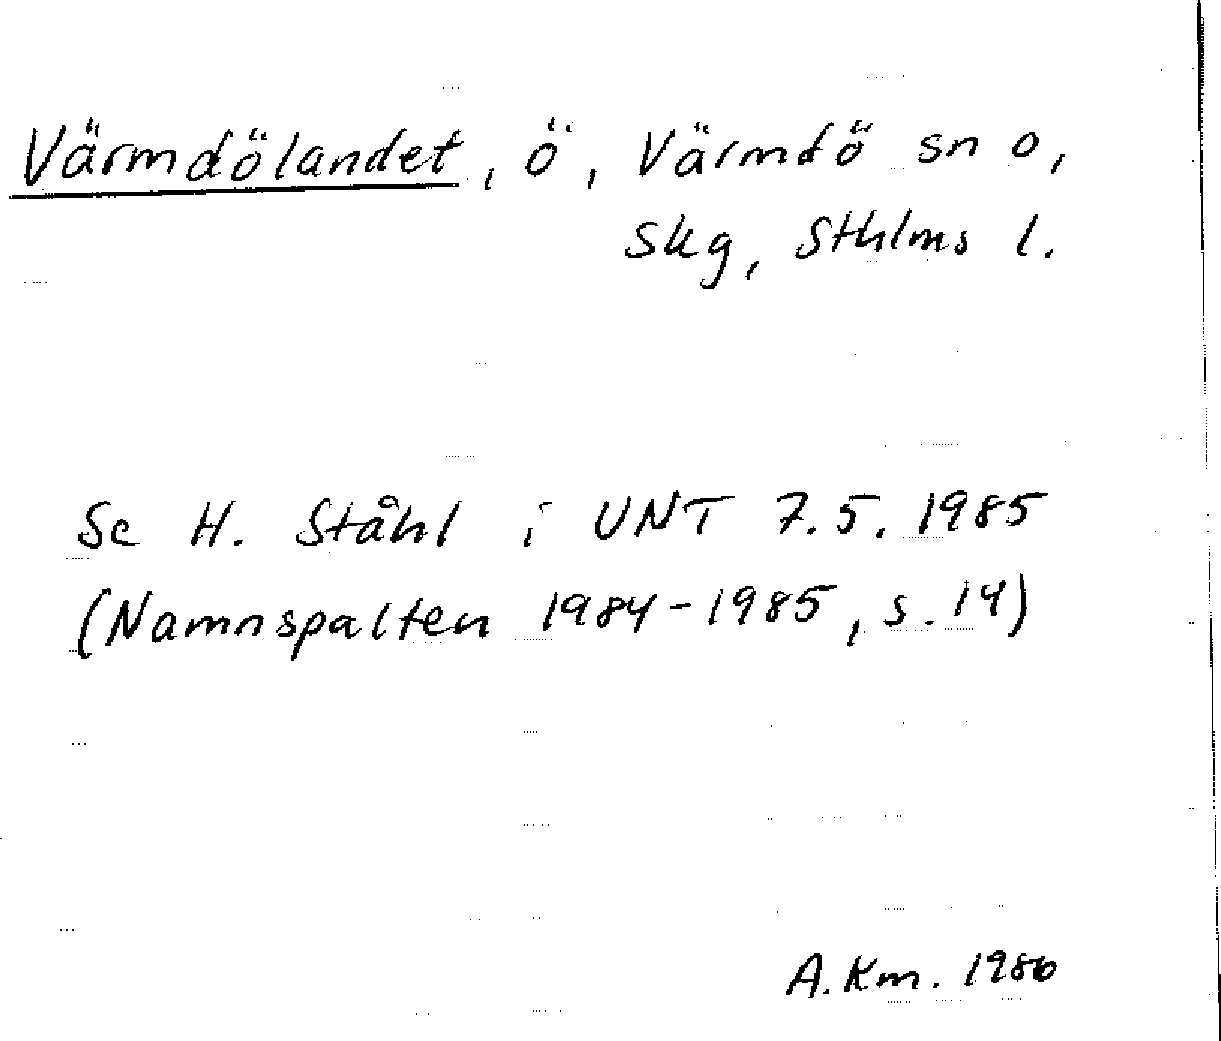 Värmdölandet, ö, Värmdö sn o,
Skg, Sthlms l.
Se H. Ståhl i UNT 7.5.1985
(Namnspalten 1984-1985, s. 14)
A. Km. 1986